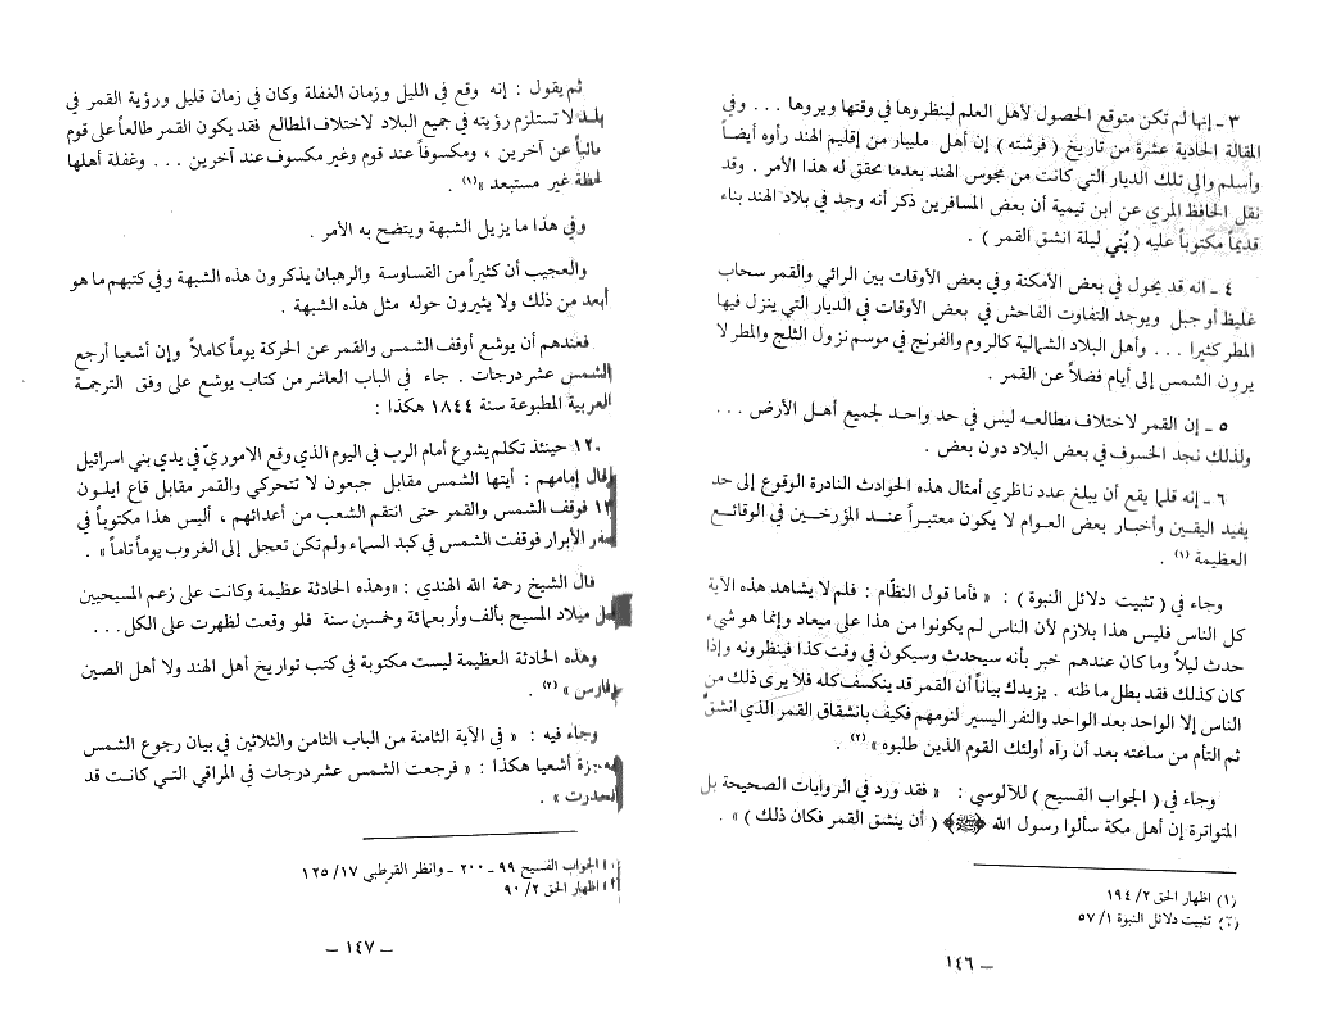 ٣ ـ إنها لم تكن متوقع الحصول لأهل العلم لينظروها في وقتها ويروها ... وفي
المقالة الحادية عشرة من تاريخ ( فرشته ) إن أهل مليبار من إقليم الهند رأوه أيضاً
وأسلم والي تلك الديار التي كانت من مجوس الهند بعدما تحقق له هذا الأمر . وقد
نقل الحافظ المري عن ابن تيمية أن بعض المسافرين ذكر أنه وجد في بلاد الهند بناء
قديماً مكتوباً عليه ( بُني ليلة انشق القمر ) .
٤ ـ انه قد يحول في بعض الأمكنة وفي بعض الأوقات بين الرائي والقمر سحاب
غليظ أو جبل ويوجد التفاوت الفاحش في بعض الأوقات في الديار التي ينزل فيها
المطر كثيرا ... وأهل البلاد الشمالية كالروم والفرنج في موسم نزول الثلج والمطر لا
يرون الشمس إلى أيام فضلاً عن القمر .
٥ ـ إن القمر لاختلاف مطالعه ليس في حد واحد لجميع أهل الأرض ...
ولذلك نجد الخسوف في بعض البلاد دون بعض .
٦ ـ إنه قلما يقع أن يبلغ عدد ناظري أمثال هذه الحوادث النادرة الوقوع إلى حد
يفيد اليقين وأخبار بعض العوام لا يكون معتبراً عند المؤرخين في الوقائع
العظيمة (١) .
وجاء في ( تثبيت دلائل النبوة ) : « فأما قول النظّام : فلم لا يشاهد هذه الآية
كل الناس فليس هذا بلازم لأن الناس لم يكونوا من هذا على ميعاد وإنما هو شيء
حدث ليلاً وما كان عندهم خبر بأنه سيحدث وسيكون في وقت كذا فينظرونه وإذا
كان كذلك فقد بطل ما ظنه . يزيدك بياناً أن القمر قد ينكسف كله فلا يرى ذلك من
الناس إلا الواحد بعد الواحد والنفر اليسير لنومهم فكيف بانشقاق القمر الذي انشقّ
ثم التأم من ساعته بعد أن رآه أولئك القوم الذين طلبوه » (٢) .
وجاء في ( الجواب الفسيح ) للآلوسي : « فقد ورد في الروايات الصحيحة بل
المتواترة إن أهل مكة سألوا رسول الله ﷺ ( أن ينشق القمر فكان ذلك ) » .
(١) اظهار الحق ٢/ ١٩٤
(٢) تثبيت دلائل النبوة ١/ ٥٧
ـ ١٤٦
ثم يقول : إنه وقع في الليل وزمان الغفلة وكان في زمان قليل ورؤية القمر في
بلد لا تستلزم رؤيته في جميع البلاد لاختلاف المطالع فقد يكون القمر طالعاً على قوم
غائباً عن آخرين ، ومكسوفاً عند قوم وغير مكسوف عند آخرين ... وغفلة أهلها
لحظة غير مستبعد » (١) .
وفي هذا ما يزيل الشبهة ويتضح به الأمر .
والعجيب أن كثيراً من القساوسة والرهبان يذكرون هذه الشبهة وفي كتبهم ما هو
أبعد من ذلك ولا يثيرون حوله مثل هذه الشبهة .
فعندهم أن يوشع أوقف الشمس والقمر عن الحركة يوماً كاملاً وإن أشعيا أرجع
الشمس عشر درجات . جاء في الباب العاشر من كتاب يوشع على وفق الترجمة
العربية المطبوعة سنة ١٨٤٤ هكذا :
١٢٠ حينئذ تكلم يشوع أمام الرب في اليوم الذي وقع الاموريّ في يدي بني اسرائيل
وقال إمامهم : أيتها الشمس مقابل جبعون لا تتحركي والقمر مقابل قاع ايلون
١٣ فوقف الشمس والقمر حتى انتقم الشعب من أعدائهم ، أليس هذا مكتوباً في
سفر الأبرار فوقفت الشمس في كبد السماء ولم تكن تعجل إلى الغروب يوماً تاماً » .
قال الشيخ رحمة الله الهندي : «وهذه الحادثة عظيمة وكانت على زعم المسيحيين
قبل ميلاد المسيح بألف وأربعمائة وخمسين سنة فلو وقعت لظهرت على الكل ...
وهذه الحادثة العظيمة ليست مكتوبة في كتب تواريخ أهل الهند ولا أهل الصين
وفارس » (٢) .
وجاء فيه : « في الآية الثامنة من الباب الثامن والثلاثين في بيان رجوع الشمس
أشعيا هكذا : « فرجعت الشمس عشر درجات في المراقي التي كانت قد
انحدرت » .
(١) الجواب الفسيح ٩٩ ـ ٢٠٠ ـ وانظر القرطبي ١٧/ ١٢٥
(٢) اظهار الحق ٢/ ٩٠
ـ ١٤٧ ـ